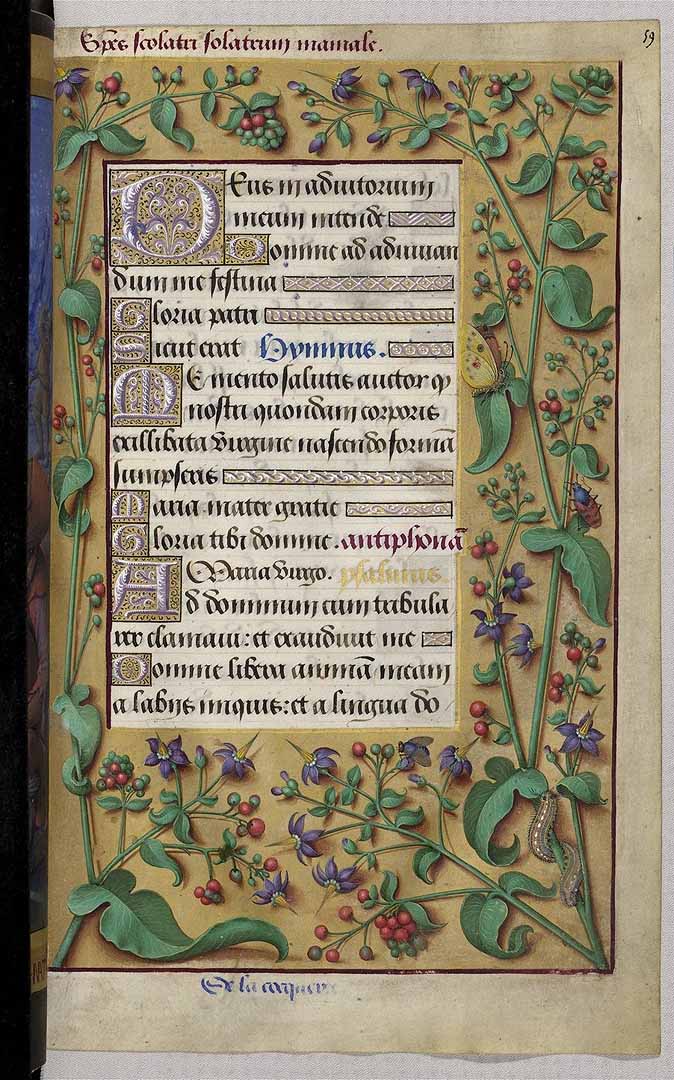 Spes scolatri solatrum mamale.
59
Deus in adiutorium
meum intende
Domine ad adiuuan
dum me festina
Gloria patri
Sicut erat Hymnus.
Memento salutis auctor ꝙ
nostri quondam corporis
exillibata virgine nascendo formā
sumpseris
Maria mater gratie
Gloria tibi domine. antiphonā
Maria virgo. psalmus.
Ad dominum cum tribula
rer clamaui: et exaudiuit me
Domine libera animā meam
a labijs iniquis: et a lingua do
De la